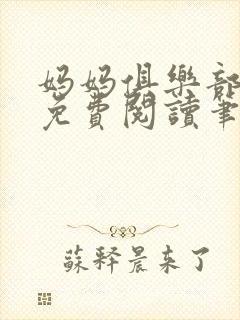 妈妈俱樂部
免費閱讀筆
蘇釋晨來了